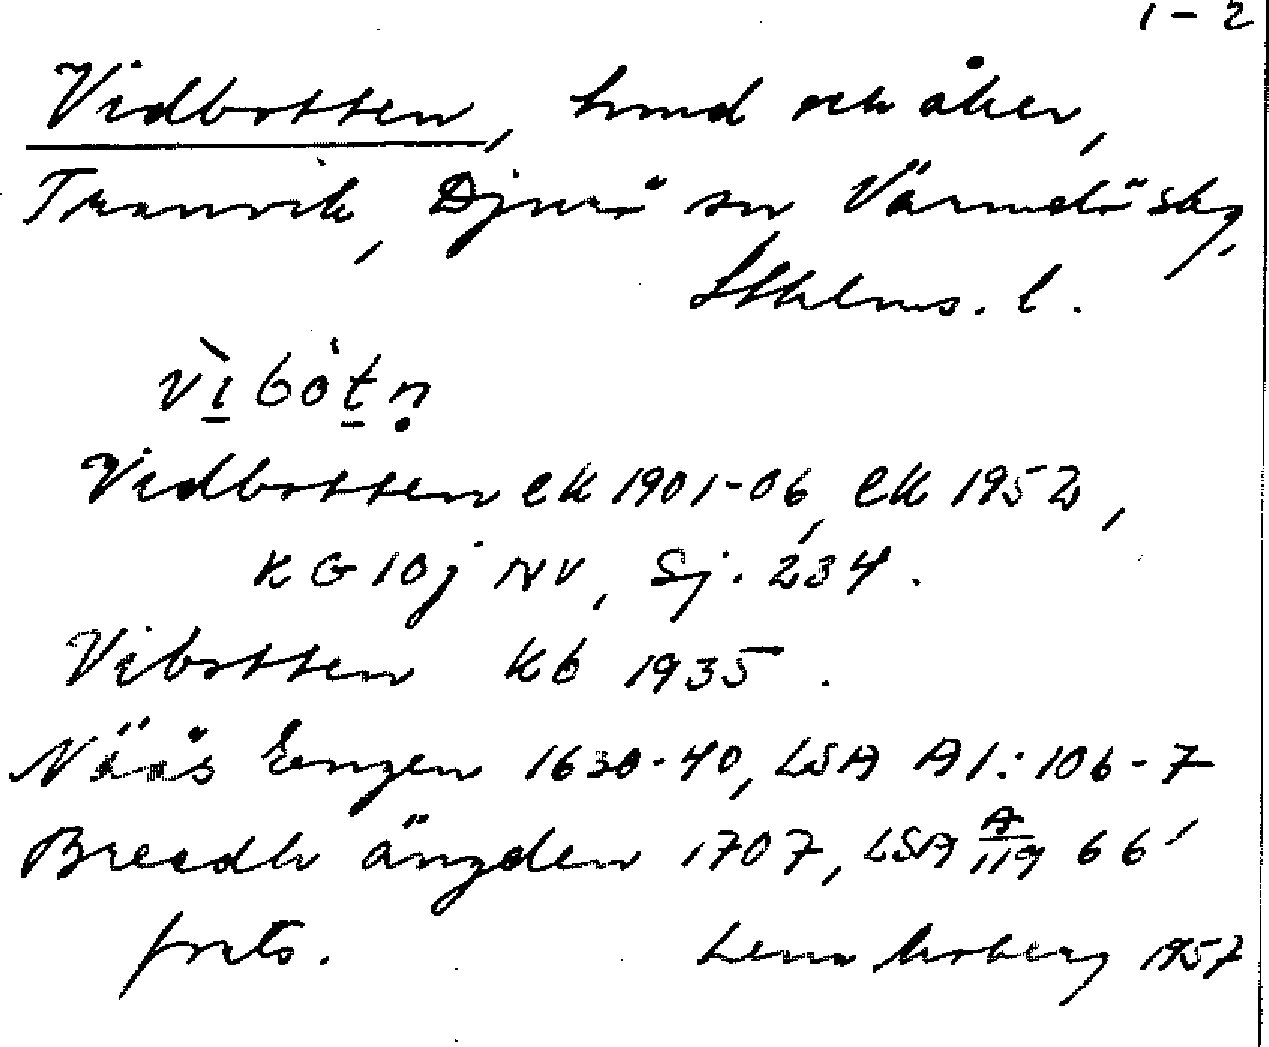 1-2
Vidbotten, lund och åker,
Tranvik, Djurö sn Värmdö skg,
Sthlms. l.
vìbòtṇ
Vidbotten ek 1901-06, ek 1952,
KG 10j NV, Sj. 234.
Vibotten Kb 1935.
Nääs Engen 1630-40, LSA A1:106-7
Breedh ängden 1707, LSA A/119 66'
forts. Lena Moberg 1957